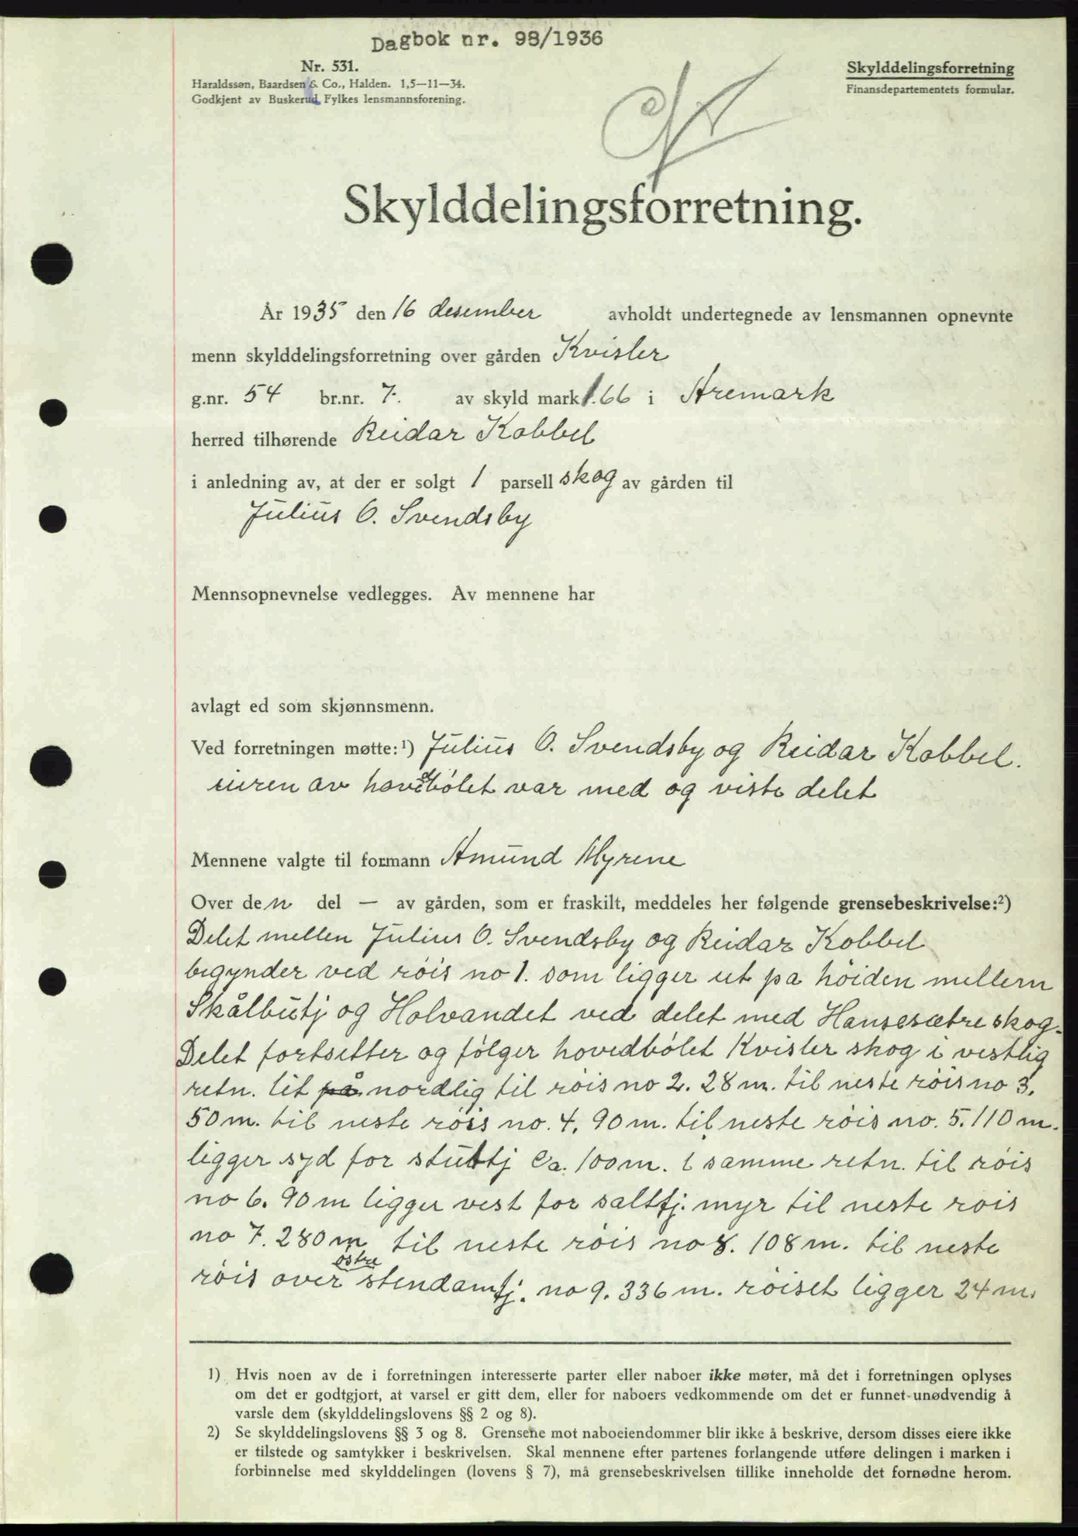 Dagbok nr. 98/1936
Nr. 531.
Haraldssøn, Baardsen & Co., Halden. 1,5—11—34.
Godkjent av Buskerud Fylkes lensmannsforening.
Skylddelingsforretning
Finansdepartementets formular.
Skylddelingsforretning.
År 1935 den 16 desember avholdt undertegnede av lensmannen opnevnte
menn skylddelingsforretning over gården Kvisler
g.nr. 54 br.nr. 7. av skyld mark 1.66 i Aremark
herred tilhørende Reidar Kobbel
i anledning av, at der er solgt 1 parsell skog av gården til
Julius O. Svendsby
Mennsopnevnelse vedlegges. Av mennene har
avlagt ed som skjønnsmenn.
Ved forretningen møtte:¹) Julius O. Svendsby og Reidar Kobbel.
eieren av hovedbølet var med og viste delet
Mennene valgte til formann Amund Myrene
Over den del — av gården, som er fraskilt, meddeles her følgende grensebeskrivelse:²)
Delet mellen Julius O. Svendsby og Reidar Kobbel
begynder ved röis no 1. som ligger ut pa höiden mellem
Skålbutj og Holvandet ved delet med Hansesætre skog.
Delet fortsetter og følger hovedbólet Kvisler skog i vestlig
retn. lit på nordlig til röis no 2. 28 m. til neste röis no 3.
50 m. til neste röis no. 4. 90 m. til neste röis no. 5. 110 m.
ligger syd for stuttj ca. 100 m. i samme retn. til röis
no 6. 90 m ligger vest for saltfj. myr til neste rois
no 7. 280 m til neste röis no 8. 108 m. til neste
röis over østre stendamtj. no 9. 336 m. röiset ligger 24 m.
1) Hvis noen av de i forretningen interesserte parter eller naboer ikke møter, må det i forretningen oplyses
om det er godtgjort, at varsel er gitt dem, eller for naboers vedkommende om det er funnet unødvendig å
varsle dem (skylddelingslovens §§ 2 og 8).
2) Se skylddelingslovens §§ 3 og 8. Grensene mot naboeiendommer blir ikke å beskrive, dersom disses eiere ikke
er tilstede og samtykker i beskrivelsen. Skal mennene efter partenes forlangende utføre delingen i marken i
forbinnelse med skylddelingen (lovens § 7), må grensebeskrivelsen tillike inneholde det fornødne herom.